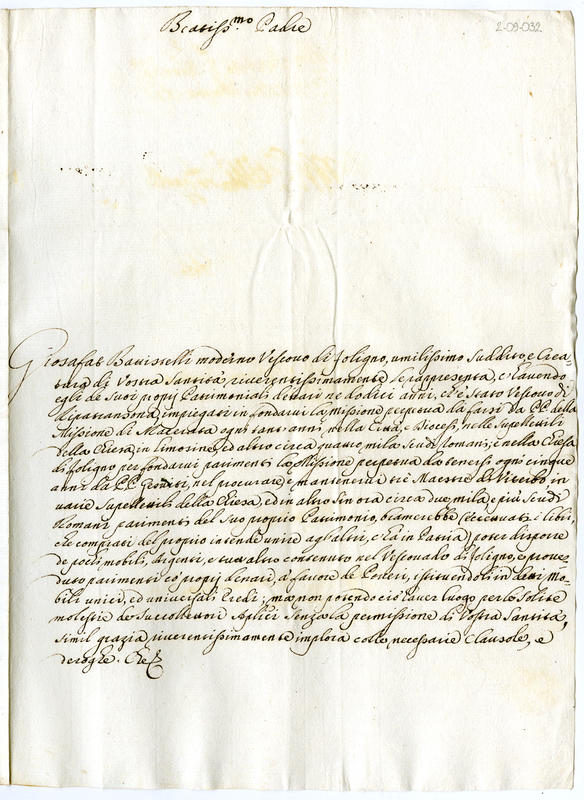 Beatiss.mo Padre
2-09-032
Giosafat Battistelli moderno Vescovo di Foligno, umilissimo suddito, e Crea-
tura di Vostra Santità, riverentissimamente le rappresenta, ch'avendo
egli de suoi proprij Patrimoniali denari ne dodici anni, ch'è stato Vescovo di
Ripatransona, impiegati in fondarvi la missione perpetua da farsi da PP. della
Missione di Macerata ogni tanti anni nella Città, e Diocesi, nelle Supellettili
della Chiesa, in limosine, ed altro circa quattro mila Scudi Romani; e nella Chiesa
di Foligno per fondarvi parimenti la Missione perpetua da tenersi ogni cinque
anni da PP. Gesuiti, nel procurare, e mantenere tre Maestre in
varie Supellettili della Chiesa, ed in altro sin ora circa due mila, e più Scudi
Romani parimenti del suo proprio Patrimonio, bramerebbe (eccettuati i libri,
che comprati del proprio intende unire agl'altri, c'hà in Patria) poter disporre
de pochi mobili, Argenti, e tutt'altro contenuto nel Vescovado di Foligno, e prove-
duto parimenti co' proprij denari, à favore de Poveri, istituendoli in detti mo-
bili unici, ed universali Eredi; mà non potendo ciò aver luogo per le solite
molestie de Succollettori Aplici senza la permissione di Vostra Santità,
simil grazia riverentissimamente implora colle necessarie Clausole, e
deroghe. Che